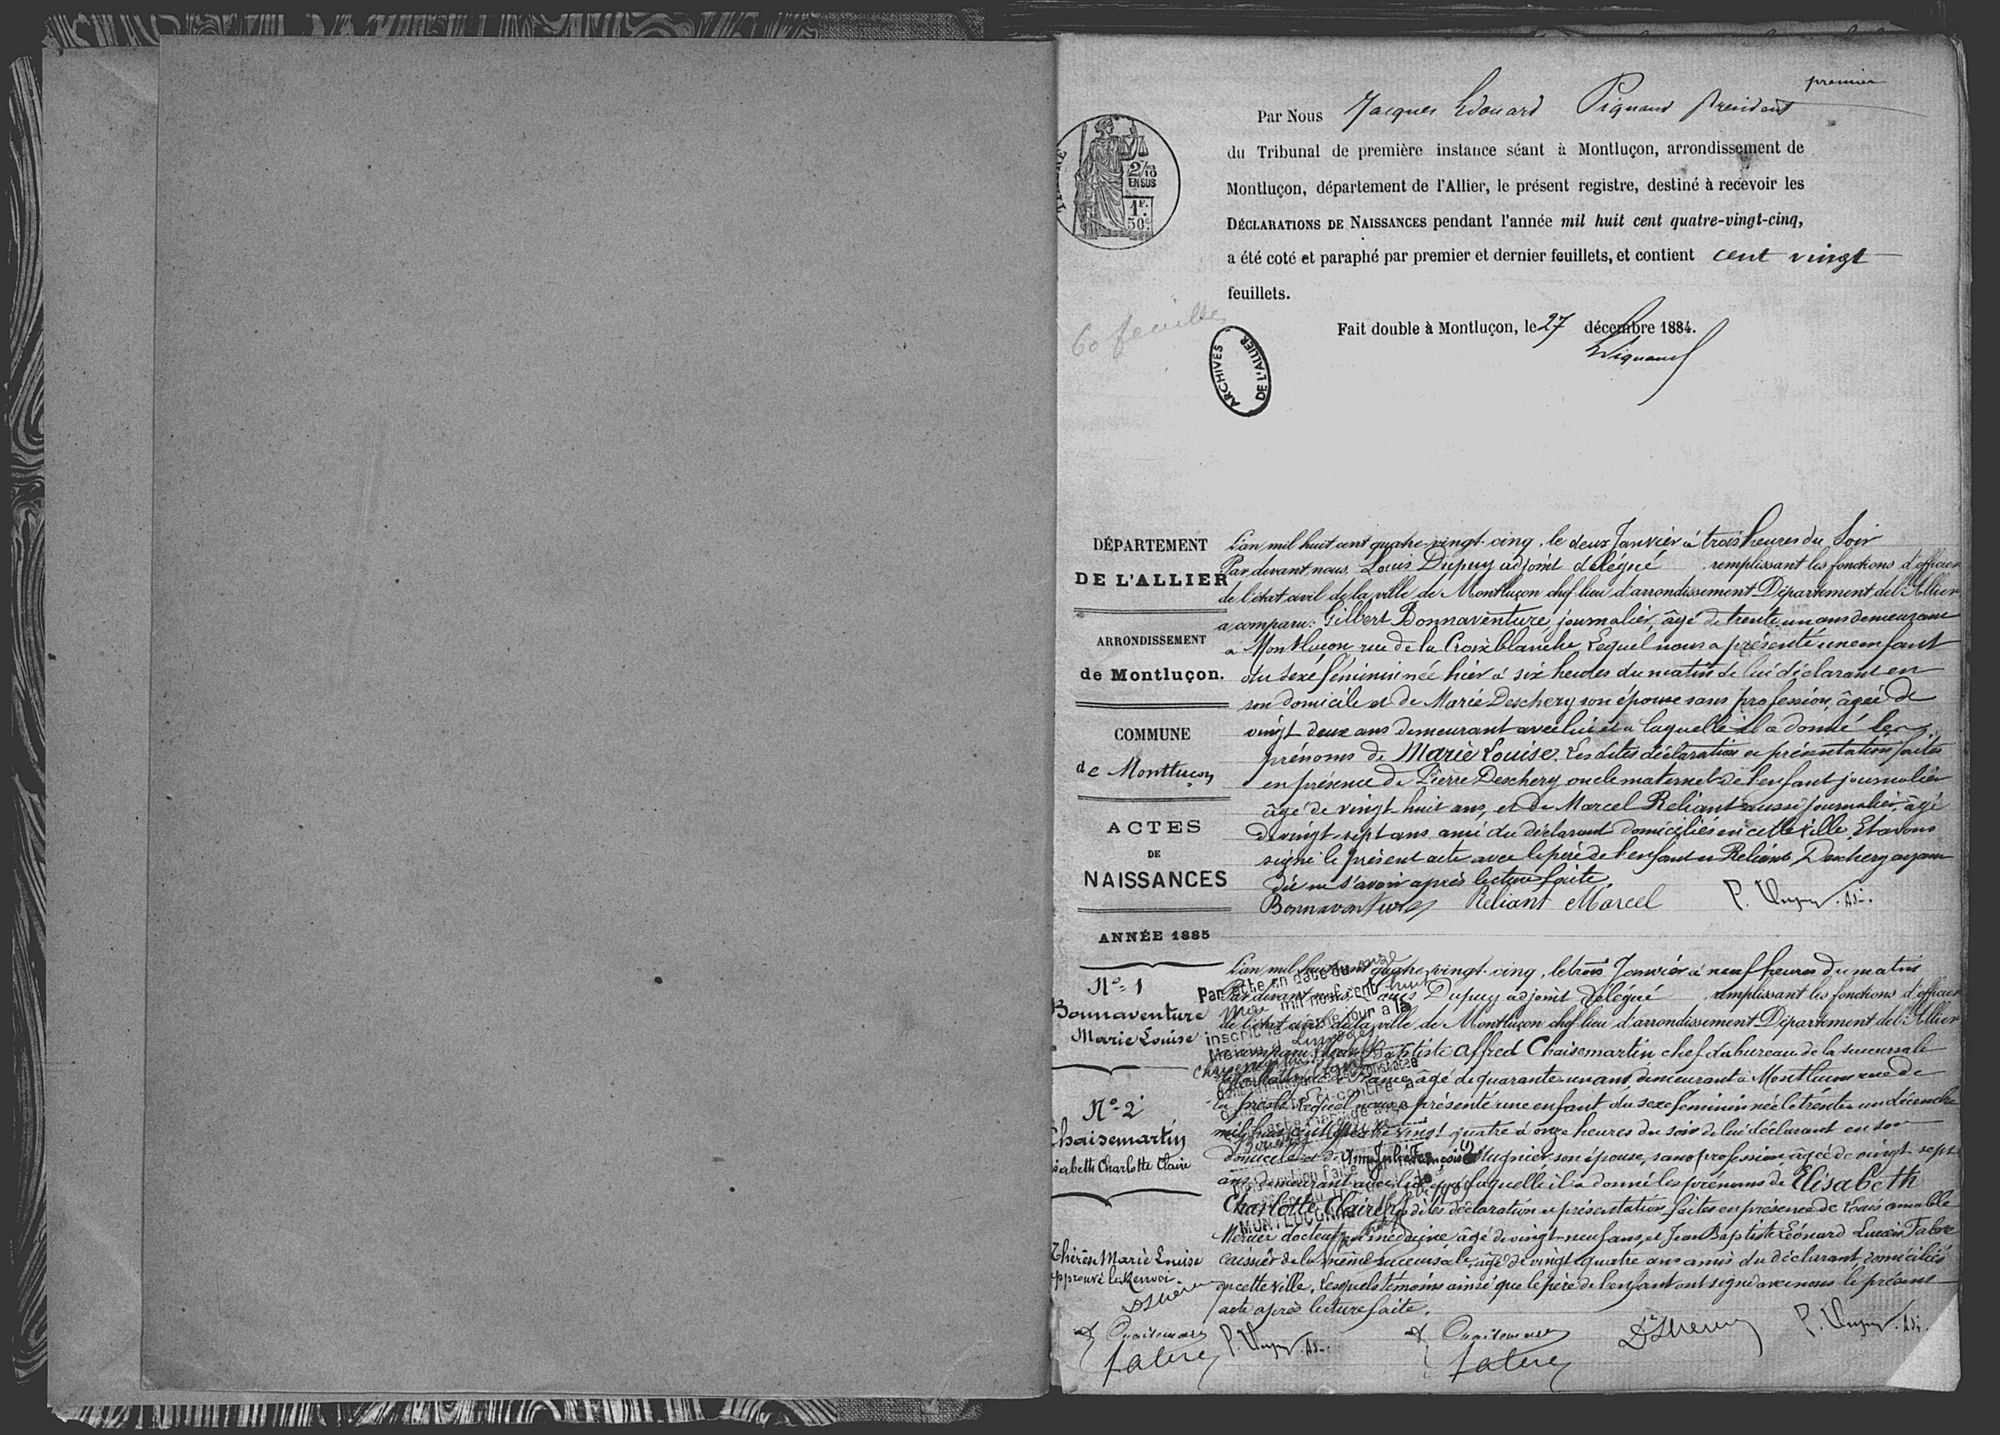 premier
Par Nous Jacques Edouard Pignaud président
du Tribunal de première instance séant à Montluçon, arrondissement de
Montluçon, département de l'Allier, le présent registre, destiné à recevoir les
DÉCLARATIONS DE NAISSANCES pendant l'année mil huit cent quatre-vingt-cinq,
a été coté et paraphé par premier et dernier feuillets, et contient cent vingt
feuillets.
Fait double à Montluçon, le 27 décembre 1884.
2/10
EN SUS
1F.
50c
60 feuilles
ARCHIVES
DE L'ALLIER
DÉPARTEMENT
DE L'ALLIER
ARRONDISSEMENT
de Montluçon.
COMMUNE
de Montluçon
ACTES
DE
NAISSANCES
ANNÉE 1885
L'an mil huit cent quatre-vingt-cinq, le deux Janvier à trois heures du Soir
Par devant nous Louis Dupuy adjoint délégué remplissant les fonctions d'officier
de l'état civil de la ville de Montluçon chef-lieu d'arrondissement Département de l'Allier
a comparu: Gilbert Bonnaventure, journalier, âgé de trente un ans demeurant
à Montluçon rue de la Croix blanche, Lequel nous a présenté un enfant
du sexe féminin née hier à six heures du matin de lui déclarant en
son domicile et de Marie Deschery son épouse sans profession, âgée de
vingt deux ans demeurant avec lui et a laquelle il a donné les
prénoms de Marie Louise. Les dites déclaration et présentation faites
en présence de Pierre Deschery oncle maternel de l'enfant journalier
âgé de vingt-huit ans, et de Marcel Reliant aussi journalier, âgé
de vingt-sept ans ami du déclarant domiciliés en cette ville Et avons
signé le présent acte avec le père de l'enfant et Reliant, Deschery ayant
dit ne savoir après lecture faite.
Bonnaventure Reliant Marcel
N° 1
Bonnaventure
Marie Louise
N° 2
Chaisemartin
Elisabeth Charlotte Claire
L'an mil huit cent quatre-vingt-cinq, le trois Janvier à neuf heures du matin
Par devant nous Louis Dupuy adjoint délégué remplissant les fonctions d'officier
de l'état civil de la ville de Montluçon chef-lieu d'arrondissement Département de l'Allier
a comparu Jean Baptiste Alfred Chaisemartin chef du bureau de la succursale
de France âgé de quarante-un ans demeurant à Montluçon rue de
la presle Lequel nous a présenté une enfant du sexe féminin née le trente un décembre
mil huit cent quatre vingt quatre à onze heures du soir de lui déclarant en son
domicile et de son épouse, sans profession âgée de vingt sept
ans demeurant avec lui et a laquelle il a donné les prénoms de Elisabeth
Charlotte Claire Les dites déclaration et présentation faites en présence de Louis amable
Mercier docteur en médecine âgé de vingt-neuf ans, et Jean Baptiste Léonard Lucien Fabre
caissier de la même succursale, âgé de vingt quatre ans amis du déclarant, domiciliés
en cette ville, Lesquels témoins ainsi que le père de l'enfant ont signé avec nous le présent
acte après lecture faite.
Par acte en date du onze
Mai mil neuf cent huit
inscrit le même jour à la
Mairie d
MONTLUÇON
Thérèse Marie Louise
approuvé le Renvoi
Fabre
Fabre